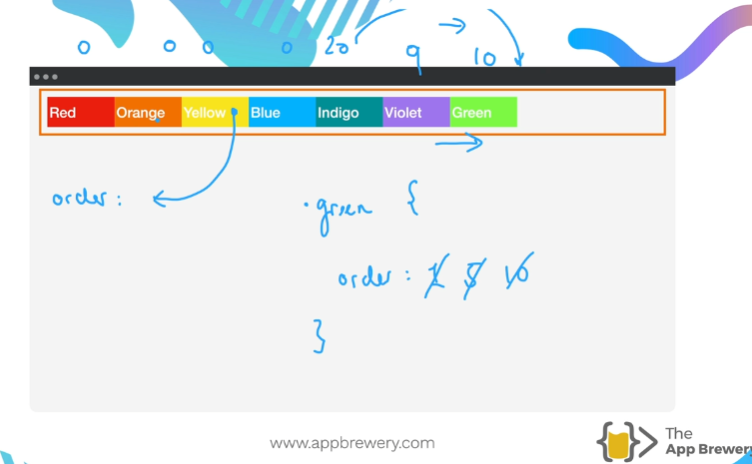 0 0 0 0 20 9 10
Red Orange Yellow Blue Indigo Violet Green
order:
.green {
order: 1 5 10
}
www.appbrewery.com
The
App Brewery